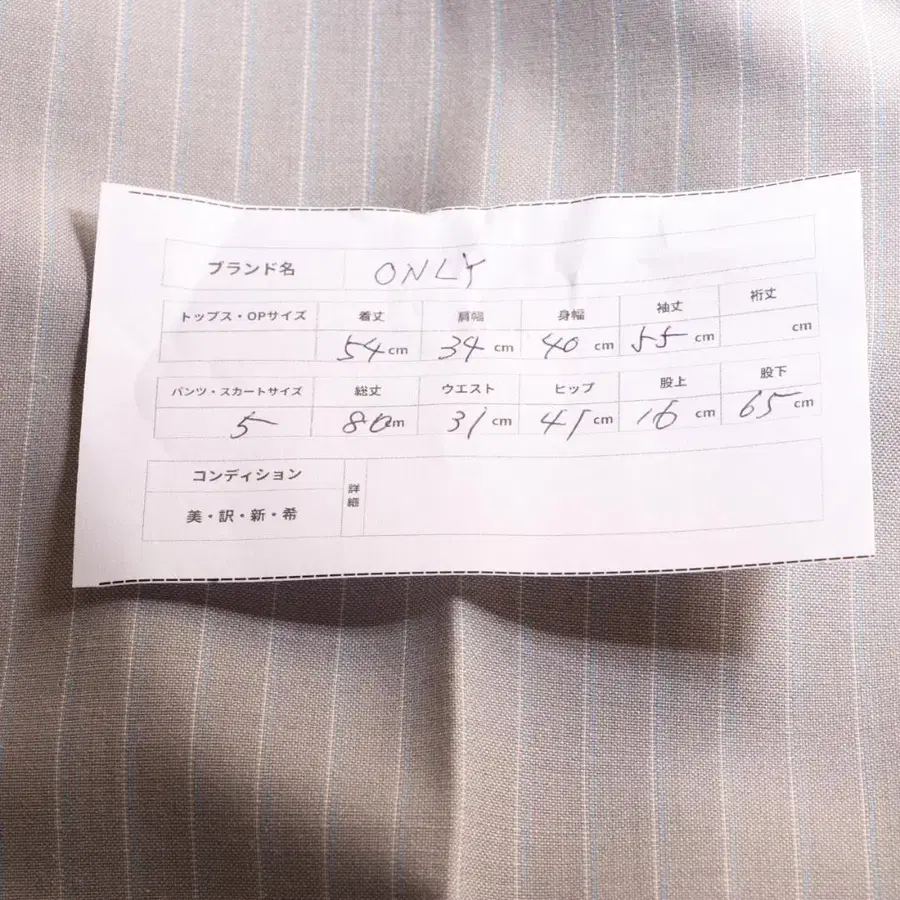 ブランド名 ONLY
トップス・OPサイズ 着丈 肩幅 身幅 袖丈 裄丈
54cm 34cm 40cm 55cm cm
パンツ・スカートサイズ 総丈 ウエスト ヒップ 股上 股下
5 80cm 31cm 41cm 16cm 65cm
コンディション 詳細
美・訳・新・希